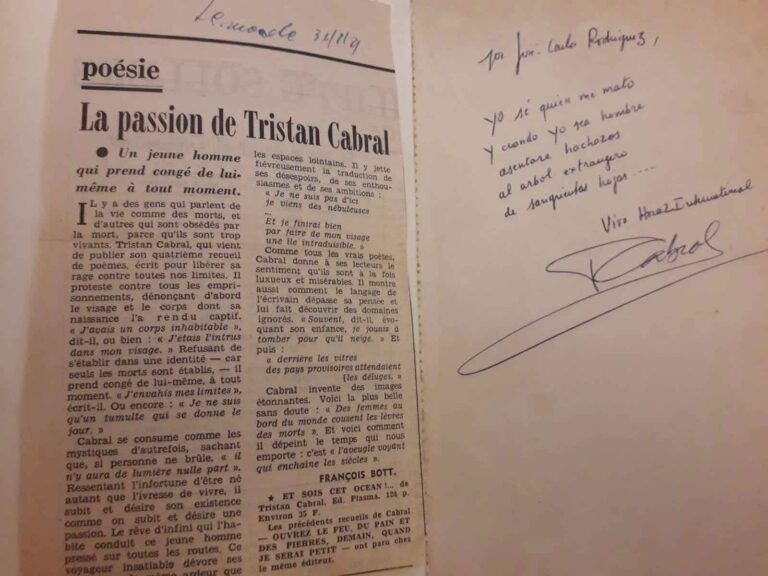 Le monde
poésie
La passion de Tristan Cabral
● Un jeune homme
qui prend congé de lui-
même à tout moment.
IL y a des gens qui parlent de
la vie comme des morts, et
d'autres qui sont obsédés par
la mort, parce qu'ils sont trop
vivants. Tristan Cabral, qui vient
de publier son quatrième recueil
de poèmes, écrit pour libérer sa
rage contre toutes nos limites. Il
proteste contre tous les empri-
sonnements, dénonçant d'abord
le visage et le corps dont sa
naissance l'a rendu captif.
« J'avais un corps inhabitable »,
dit-il, ou bien : « J'étais l'intrus
dans mon visage. » Refusant de
s'établir dans une identité — car
seuls les morts sont établis, — il
prend congé de lui-même, à tout
moment. « J'envahis mes limites »,
écrit-il. Ou encore : « Je ne suis
qu'un tumulte qui se donne le
jour. »
Cabral se consume comme les
mystiques d'autrefois, sachant
que, si personne ne brûle, « il
n'y aura de lumière nulle part ».
Ressentant l'infortune d'être né
autant que l'ivresse de vivre, il
subit et désire son existence
comme on subit et désire une
passion. Le rêve d'infini qui l'ha-
bite conduit ce jeune homme
pressé sur toutes les routes. Ce
voyageur insatiable dévore ses
même ardeur que
les espaces lointains. Il y jette
fiévreusement la traduction de
ses désespoirs, de ses enthou-
siasmes et de ses ambitions :
« Je ne suis pas d'ici
je viens des nébuleuses
...
Et je finirai bien
par faire de mon visage
une île intraduisible. »
Comme tous les vrais poètes,
Cabral donne à ses lecteurs le
sentiment qu'ils sont à la fois
luxueux et misérables. Il montre
aussi comment le langage de
l'écrivain dépasse sa pensée et
lui fait découvrir des domaines
ignorés. « Souvent, dit-il, évo-
quant son enfance, je jouais à
tomber pour qu'il neige. » Et
puis :
« derrière les vitres
des pays provisoires attendaient
[les déluges. »
Cabral invente des images
étonnantes. Voici la plus belle
sans doute : « Des femmes au
bord du monde cousent les lèvres
des morts ». Et voici comment
il dépeint le temps qui nous
emporte : c'est « l'aveugle voyant
qui enchaîne les siècles ».
FRANÇOIS BOTT.
★ ET SOIS CET OCEAN !... de
Tristan Cabral. Ed. Plasma. 124 p.
Environ 35 F.
Les précédents recueils de Cabral
— OUVREZ LE FEU, DU PAIN ET
DES PIERRES, DEMAIN, QUAND
JE SERAI PETIT — ont paru chez
le même éditeur.
por José-Carlos Rodriguez,
yo sé quien me mato
y cuando yo sea hombre
asentare hachazos
al arbol extrangero
de sangrientas hojas ....
Viva International
Cabral